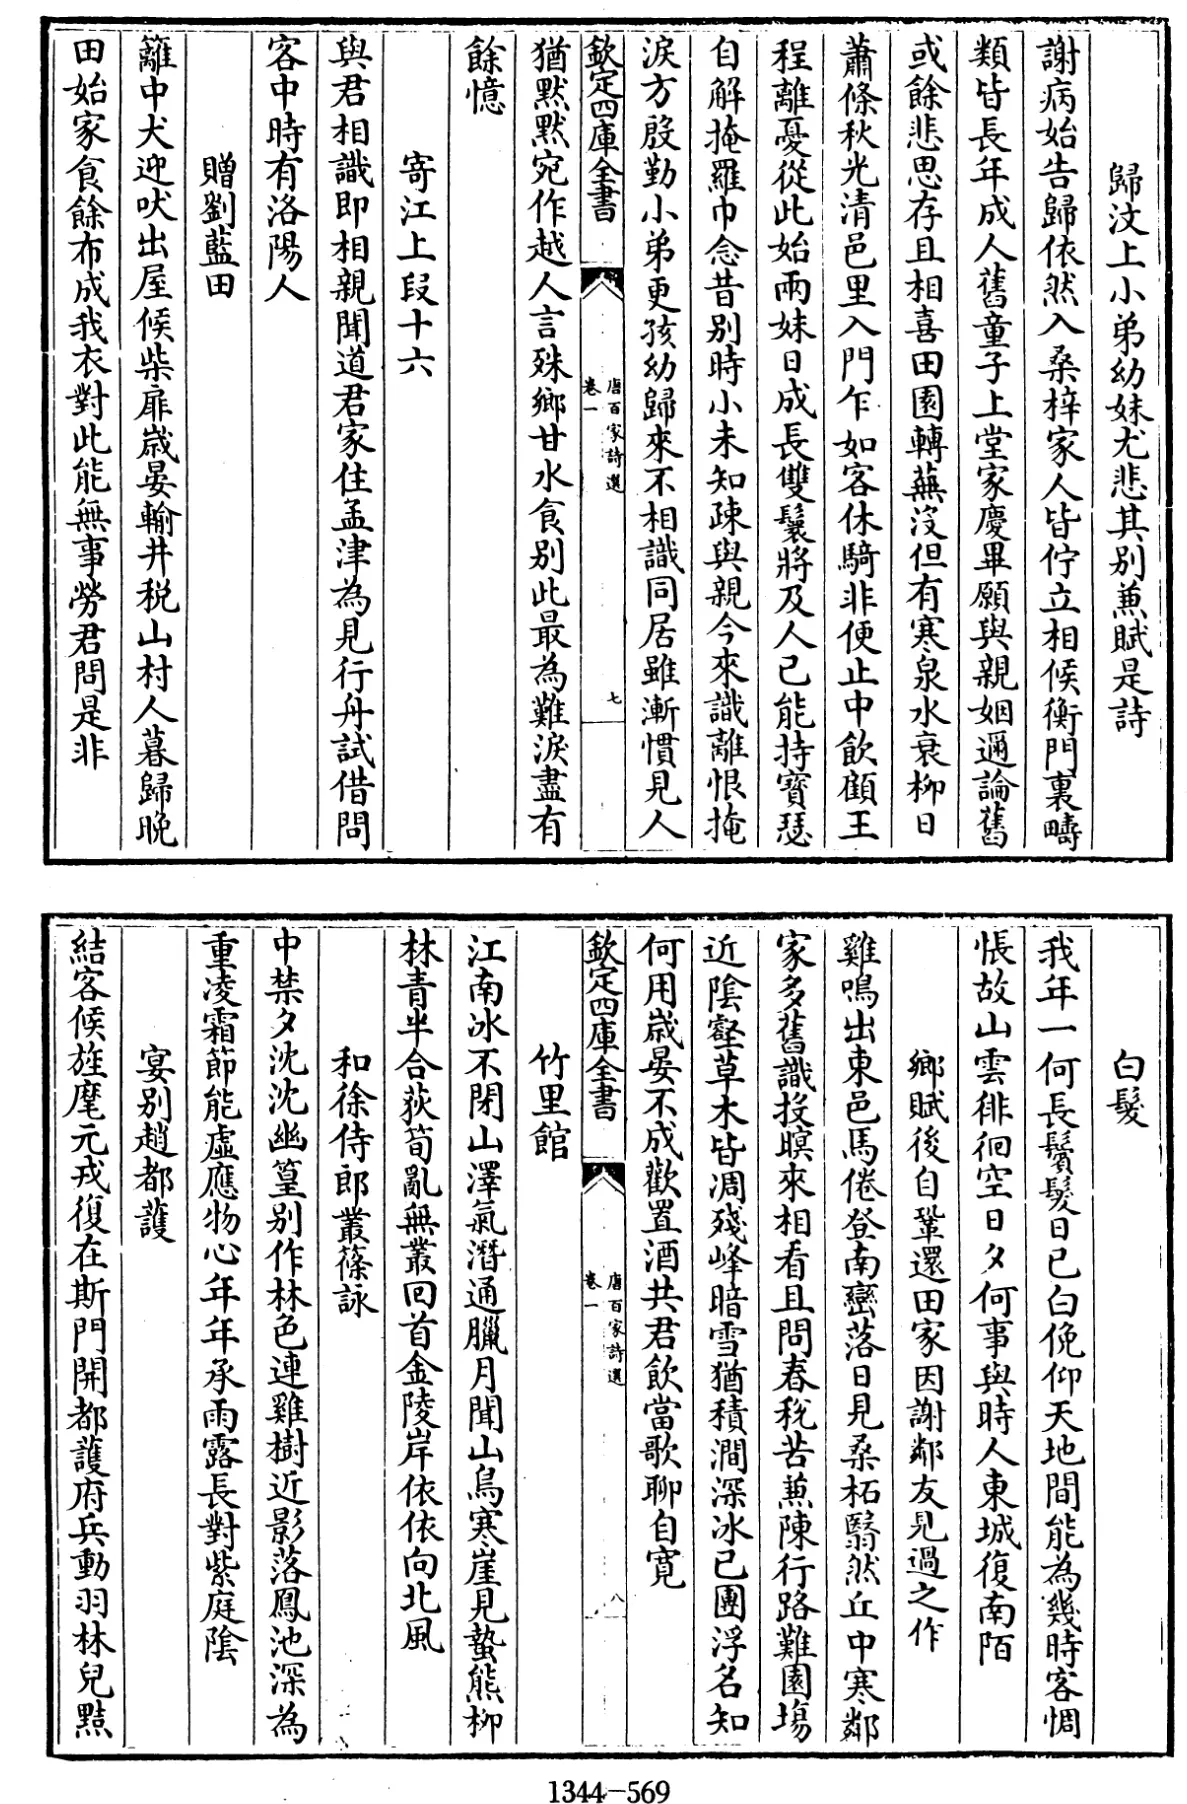 歸汶上小弟幼妹尤悲其別兼賦是詩
謝病始告歸依然入桑梓家人皆佇立相候衡門裏疇
類皆長年成人舊童子上堂家慶畢願與親姻邇論舊
或餘悲思存且相喜田園轉蕪沒但有寒泉水衰柳日
蕭條秋光清邑里入門乍如客休騎非便止中飲顧王
程離憂從此始兩妹日成長雙鬟將及人已能持寶瑟
自解掩羅巾念昔別時小未知疎與親今來識離恨掩
淚方殷勤小弟更孩幼歸來不相識同居雖漸慣見人
欽定四庫全書
唐百家詩選
卷一
七
猶默默宛作越人言殊鄉甘水食別此最為難淚盡有
餘憶
寄江上段十六
與君相識即相親聞道君家住孟津為見行舟試借問
客中時有洛陽人
贈劉藍田
籬中犬迎吠出屋候柴扉歲晏輸井稅山村人暮歸晚
田始家食餘布成我衣對此能無事勞君問是非
白髮
我年一何長鬢髮日已白俛仰天地間能為幾時客惆
悵故山雲徘徊空日夕何事與時人東城復南陌
鄉賦後自鞏還田家因謝鄰友見過之作
雞鳴出東邑馬倦登南巒落日見桑柘翳然丘中寒鄰
家多舊識投暝來相看且問春稅苦兼陳行路難園場
近陰壑草木皆凋殘峰暗雪猶積澗深冰已團浮名知
何用歲晏不成歡置酒共君飲當歌聊自寬
欽定四庫全書
唐百家詩選
卷一
八
竹里館
江南冰不閉山澤氣潛通臘月聞山鳥寒崖見蟄熊柳
林青半合荻筍亂無叢回首金陵岸依依向北風
和徐侍郎叢篠詠
中禁夕沈沈幽篁別作林色連雞樹近影落鳳池深為
重凌霜節能虛應物心年年承雨露長對紫庭陰
宴別趙都護
結客候旌麾元戎復在斯門開都護府兵動羽林兒黠
1344-569